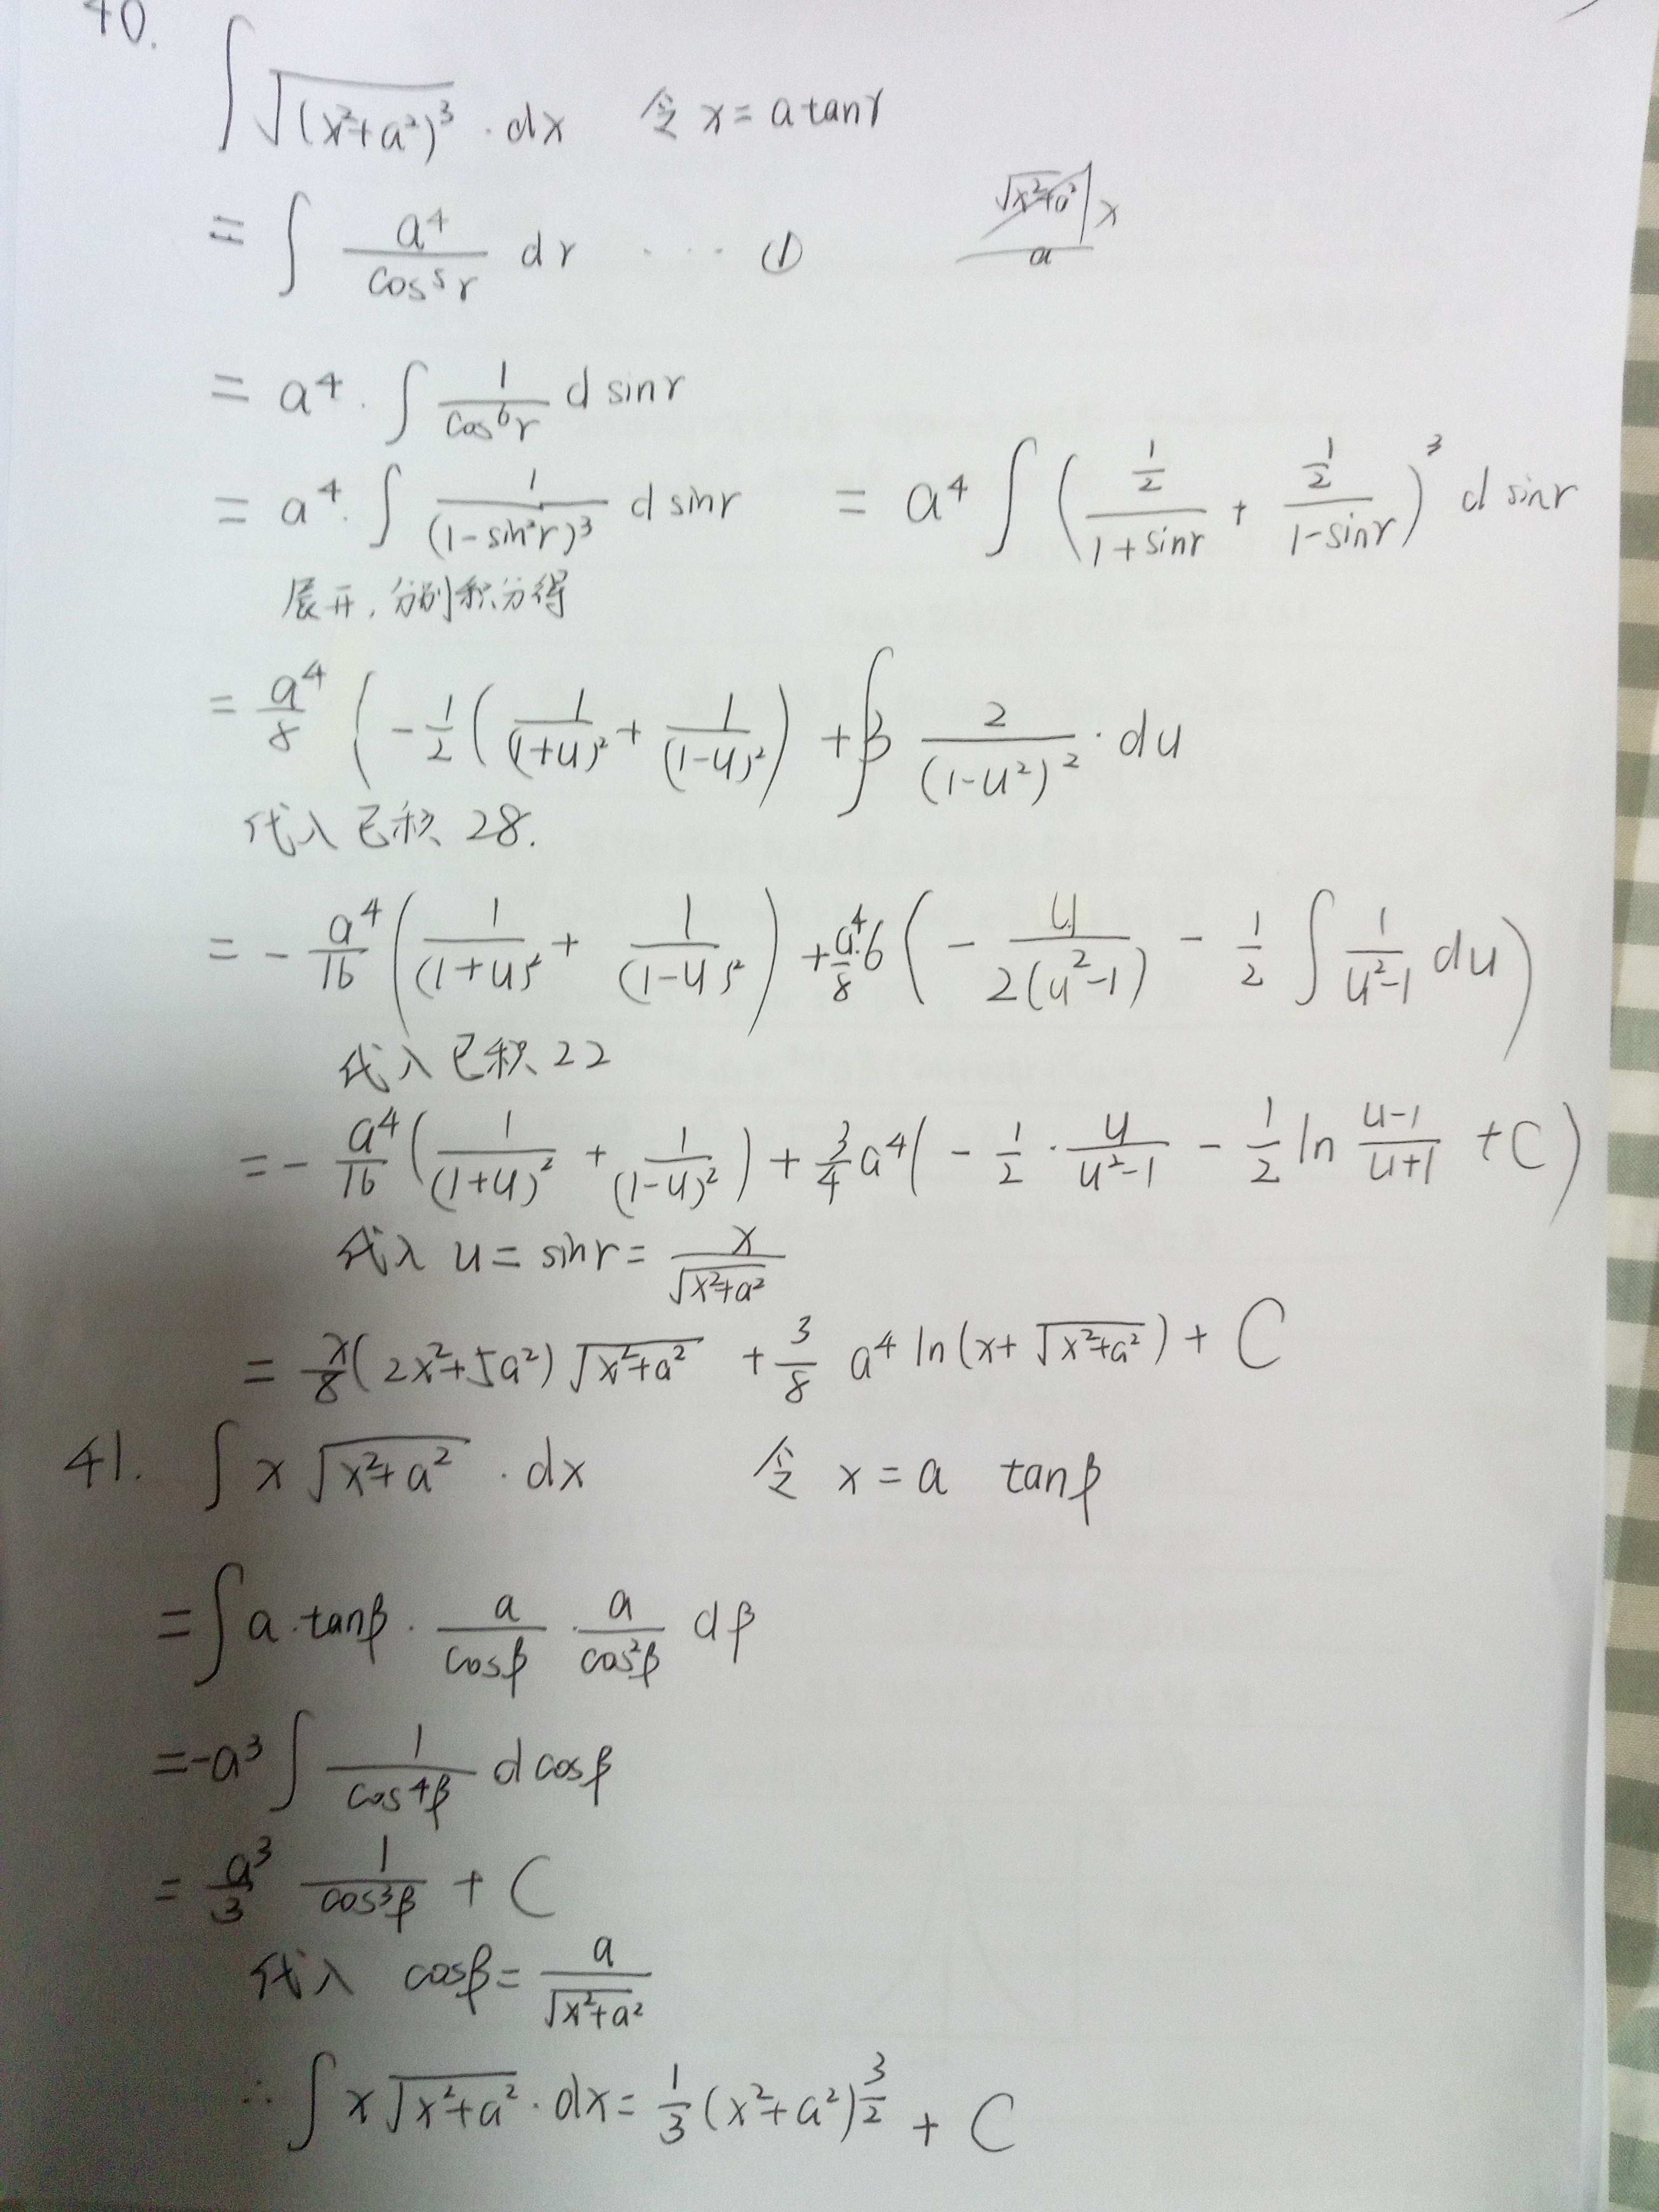 40.
∫√(x²+a²)³ · dx 令 x = a tanγ
= ∫ a⁴/cos⁵γ dγ ···· ①
√x²+a² x
a
= a⁴ · ∫ 1/cos⁶γ d sinγ
= a⁴ · ∫ 1/(1-sin²γ)³ d sinγ = a⁴ ∫ (½/(1+sinγ) + ½/(1-sinγ))³ d sinγ
展开,分别积分得
= a⁴/8 (-½(1/(1+u)² + 1/(1-u)²) + ∫3 2/(1-u²)² · du
代入已积 28.
= -a⁴/16 (1/(1+u)² + 1/(1-u)²) + a⁴/8·6 (-u/2(u²-1) - ½ ∫ 1/(u²-1) du)
代入已积 22
= -a⁴/16 (1/(1+u)² + 1/(1-u)²) + ¾a⁴(-½ · u/(u²-1) - ½ ln (u-1)/(u+1) + C)
代入 u = sinγ = x/√(x²+a²)
= x/8(2x²+5a²)√(x²+a²) + 3/8 a⁴ ln(x+√(x²+a²)) + C
41. ∫ x√(x²+a²) · dx 令 x = a tanβ
= ∫ a·tanβ · a/cosβ · a/cos²β dβ
= -a³ ∫ 1/cos⁴β d cosβ
= a³/3 1/cos³β + C
代入 cosβ = a/√(x²+a²)
∴ ∫ x√(x²+a²) · dx = 1/3 (x²+a²)^(3/2) + C